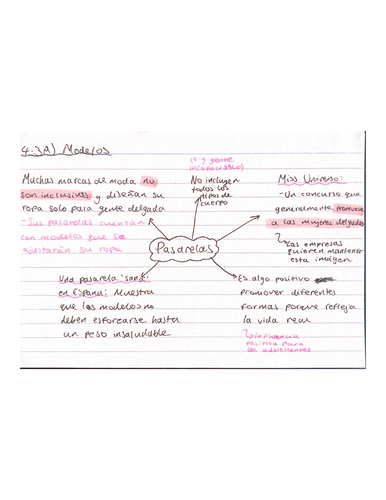 4.3A) Modelos
Muchas marcas de moda no
son inclusivas y diseñan su
ropa solo para gente delgada
- Sus pasarelas cuentan
con modelos que se
ajustarán su ropa
(e.g gente
incapacidado)
No incluyen
todos los
tipos de
cuerpo
Miss Universo:
- Un concurso que
generalmente promueve
a las mujeres delgadas
Las empresas
quieren mantener
esta imágen
Pasarelas
Una pasarela 'sana'
en España: Muestra
que las modelos no
deben esforzarse hasta
un peso insaludable
Es algo positivo
promover diferentes
formas porque refleja
la vida real
influencia
positiva para
los adolescentes